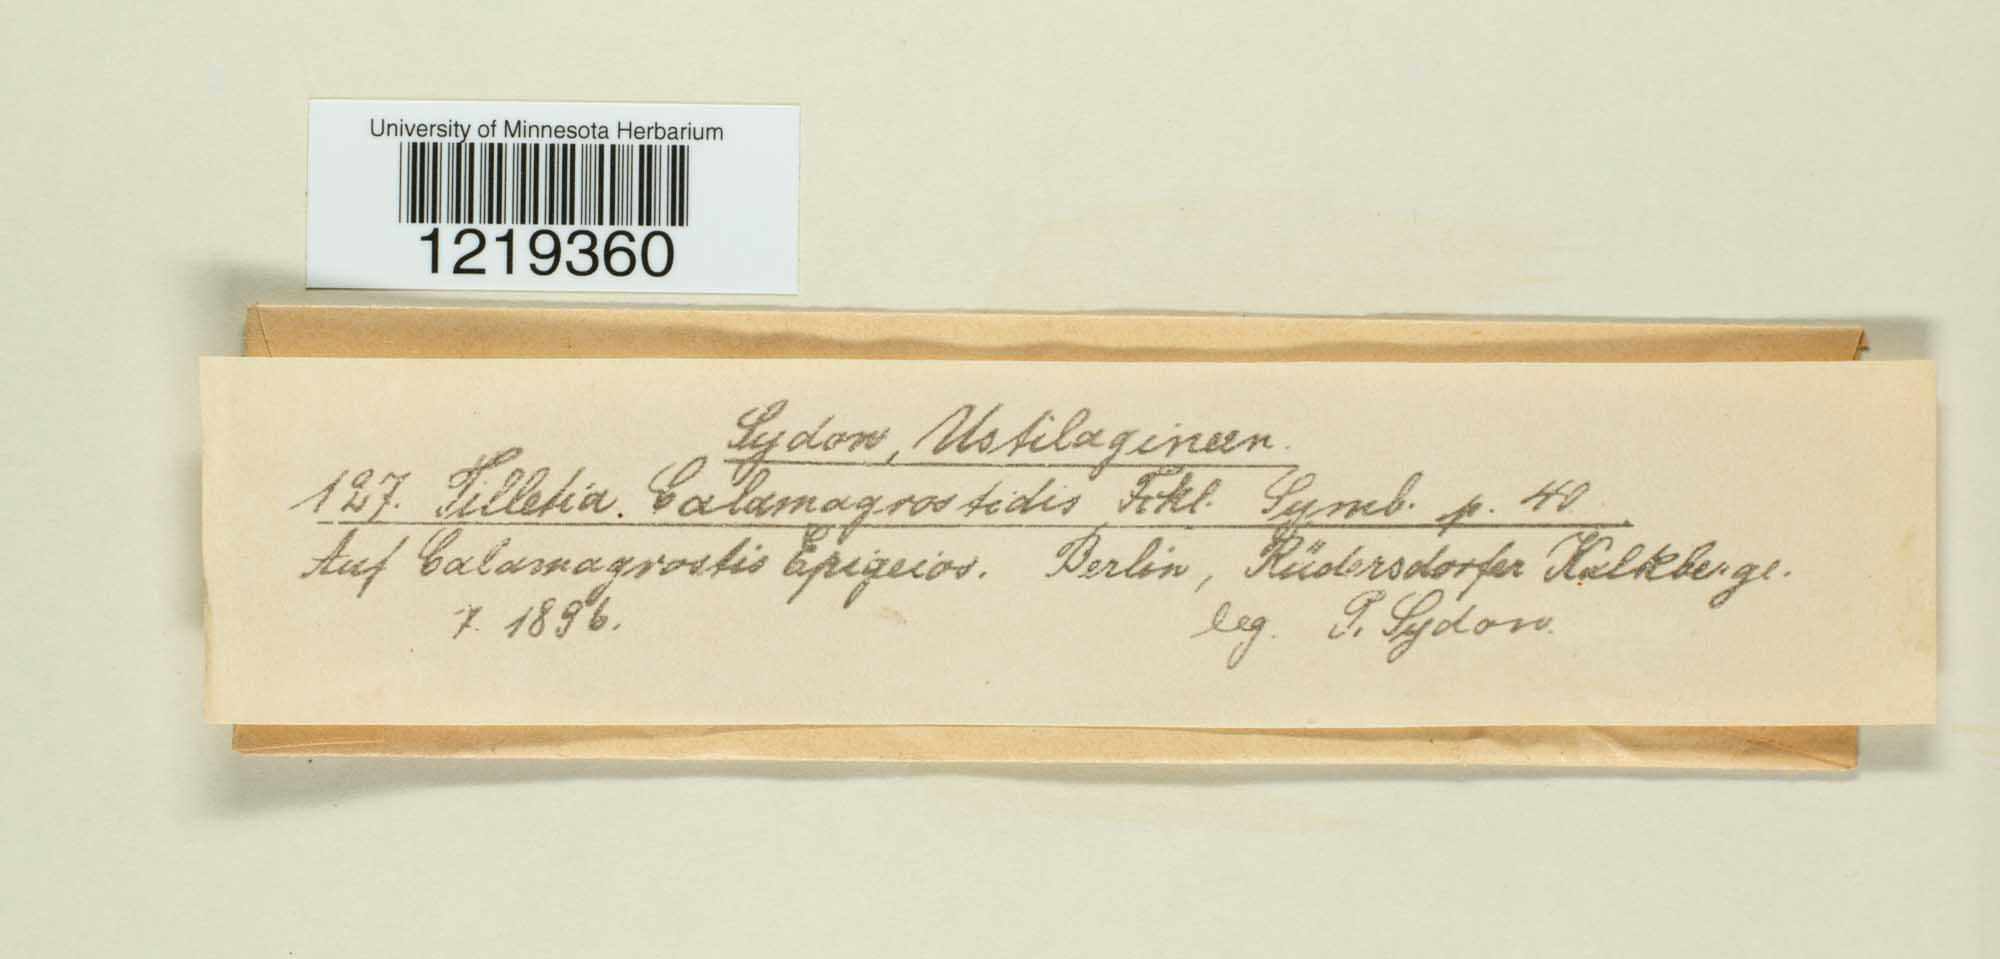 University of Minnesota Herbarium
1219360
Sydow, Ustilagineen.
127. Tilletia Calamagrostidis Fckl. Symb. p. 40.
Auf Calamagrostis Epigeios. Berlin, Rüdersdorfer Kalkberge.
7. 1896. leg. P. Sydow.